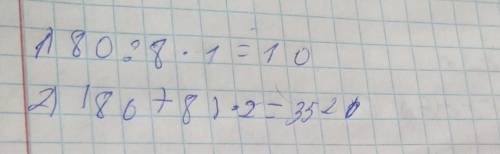 1) 80:8·1=10
2) (80+8)·2=352